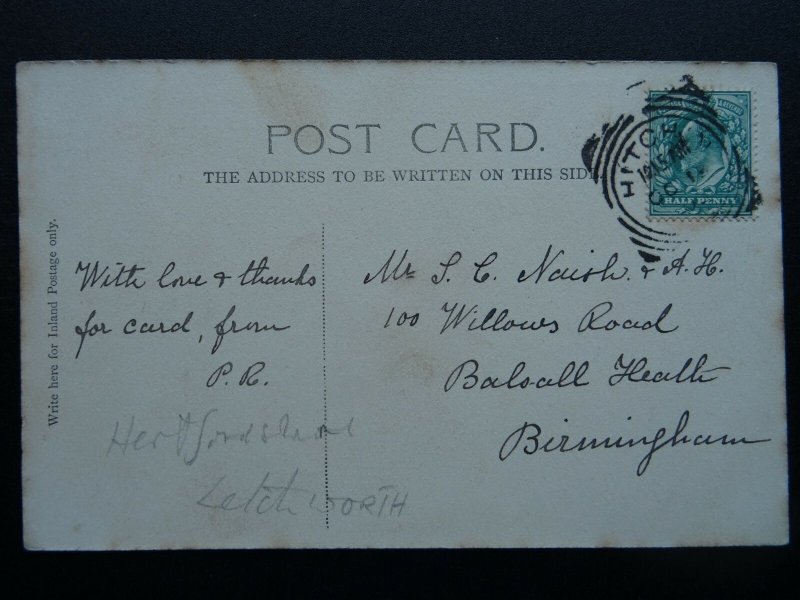 POST CARD.
THE ADDRESS TO BE WRITTEN ON THIS SIDE
HITCH
HALF PENNY
Write here for Inland Postage only.
With love & thanks
for card, from
P. R.
Mr S. C. Naish. & A. H.
100 Willows Road
Balsall Heath
Birmingham
Hertfordshire
Letchworth